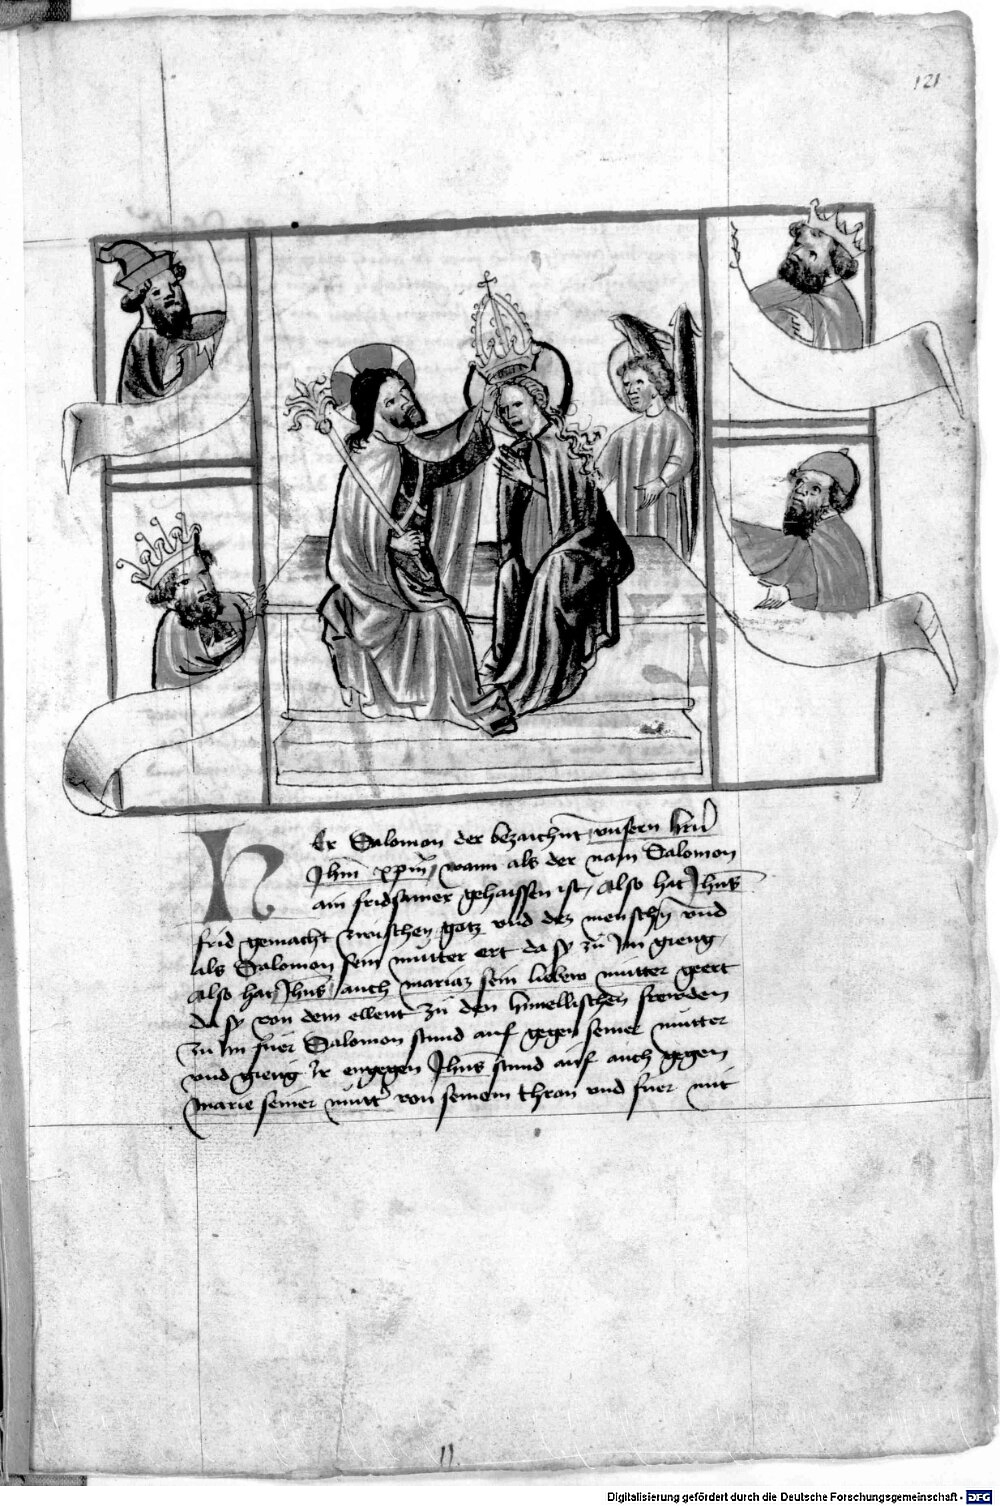 121
Er Salomon der bezaichnt unsern hrn̄
Jhm̄ xpm̄ / wann als der nam Salomon
ain fridsamer gehaissen ist / also hat Jhus̄
frid gemacht zwischen gotz und dez menschn̄ vnd
als Salomon sein mutter ert da sy zů im gieng /
also hat Jhus̄ / auch mariaz sein liebew mutter geert
da sy von dem ellent zů den himellischen frewden
zů im fuer Salomon stund auf gegen seiner mutter
vnd gieng Ir engegen Jhus̄ stund auf auch gegen
Marie seiner mutt' von seinem thron vnd fuer mit
Digitalisierung gefördert durch die Deutsche Forschungsgemeinschaft - DFG